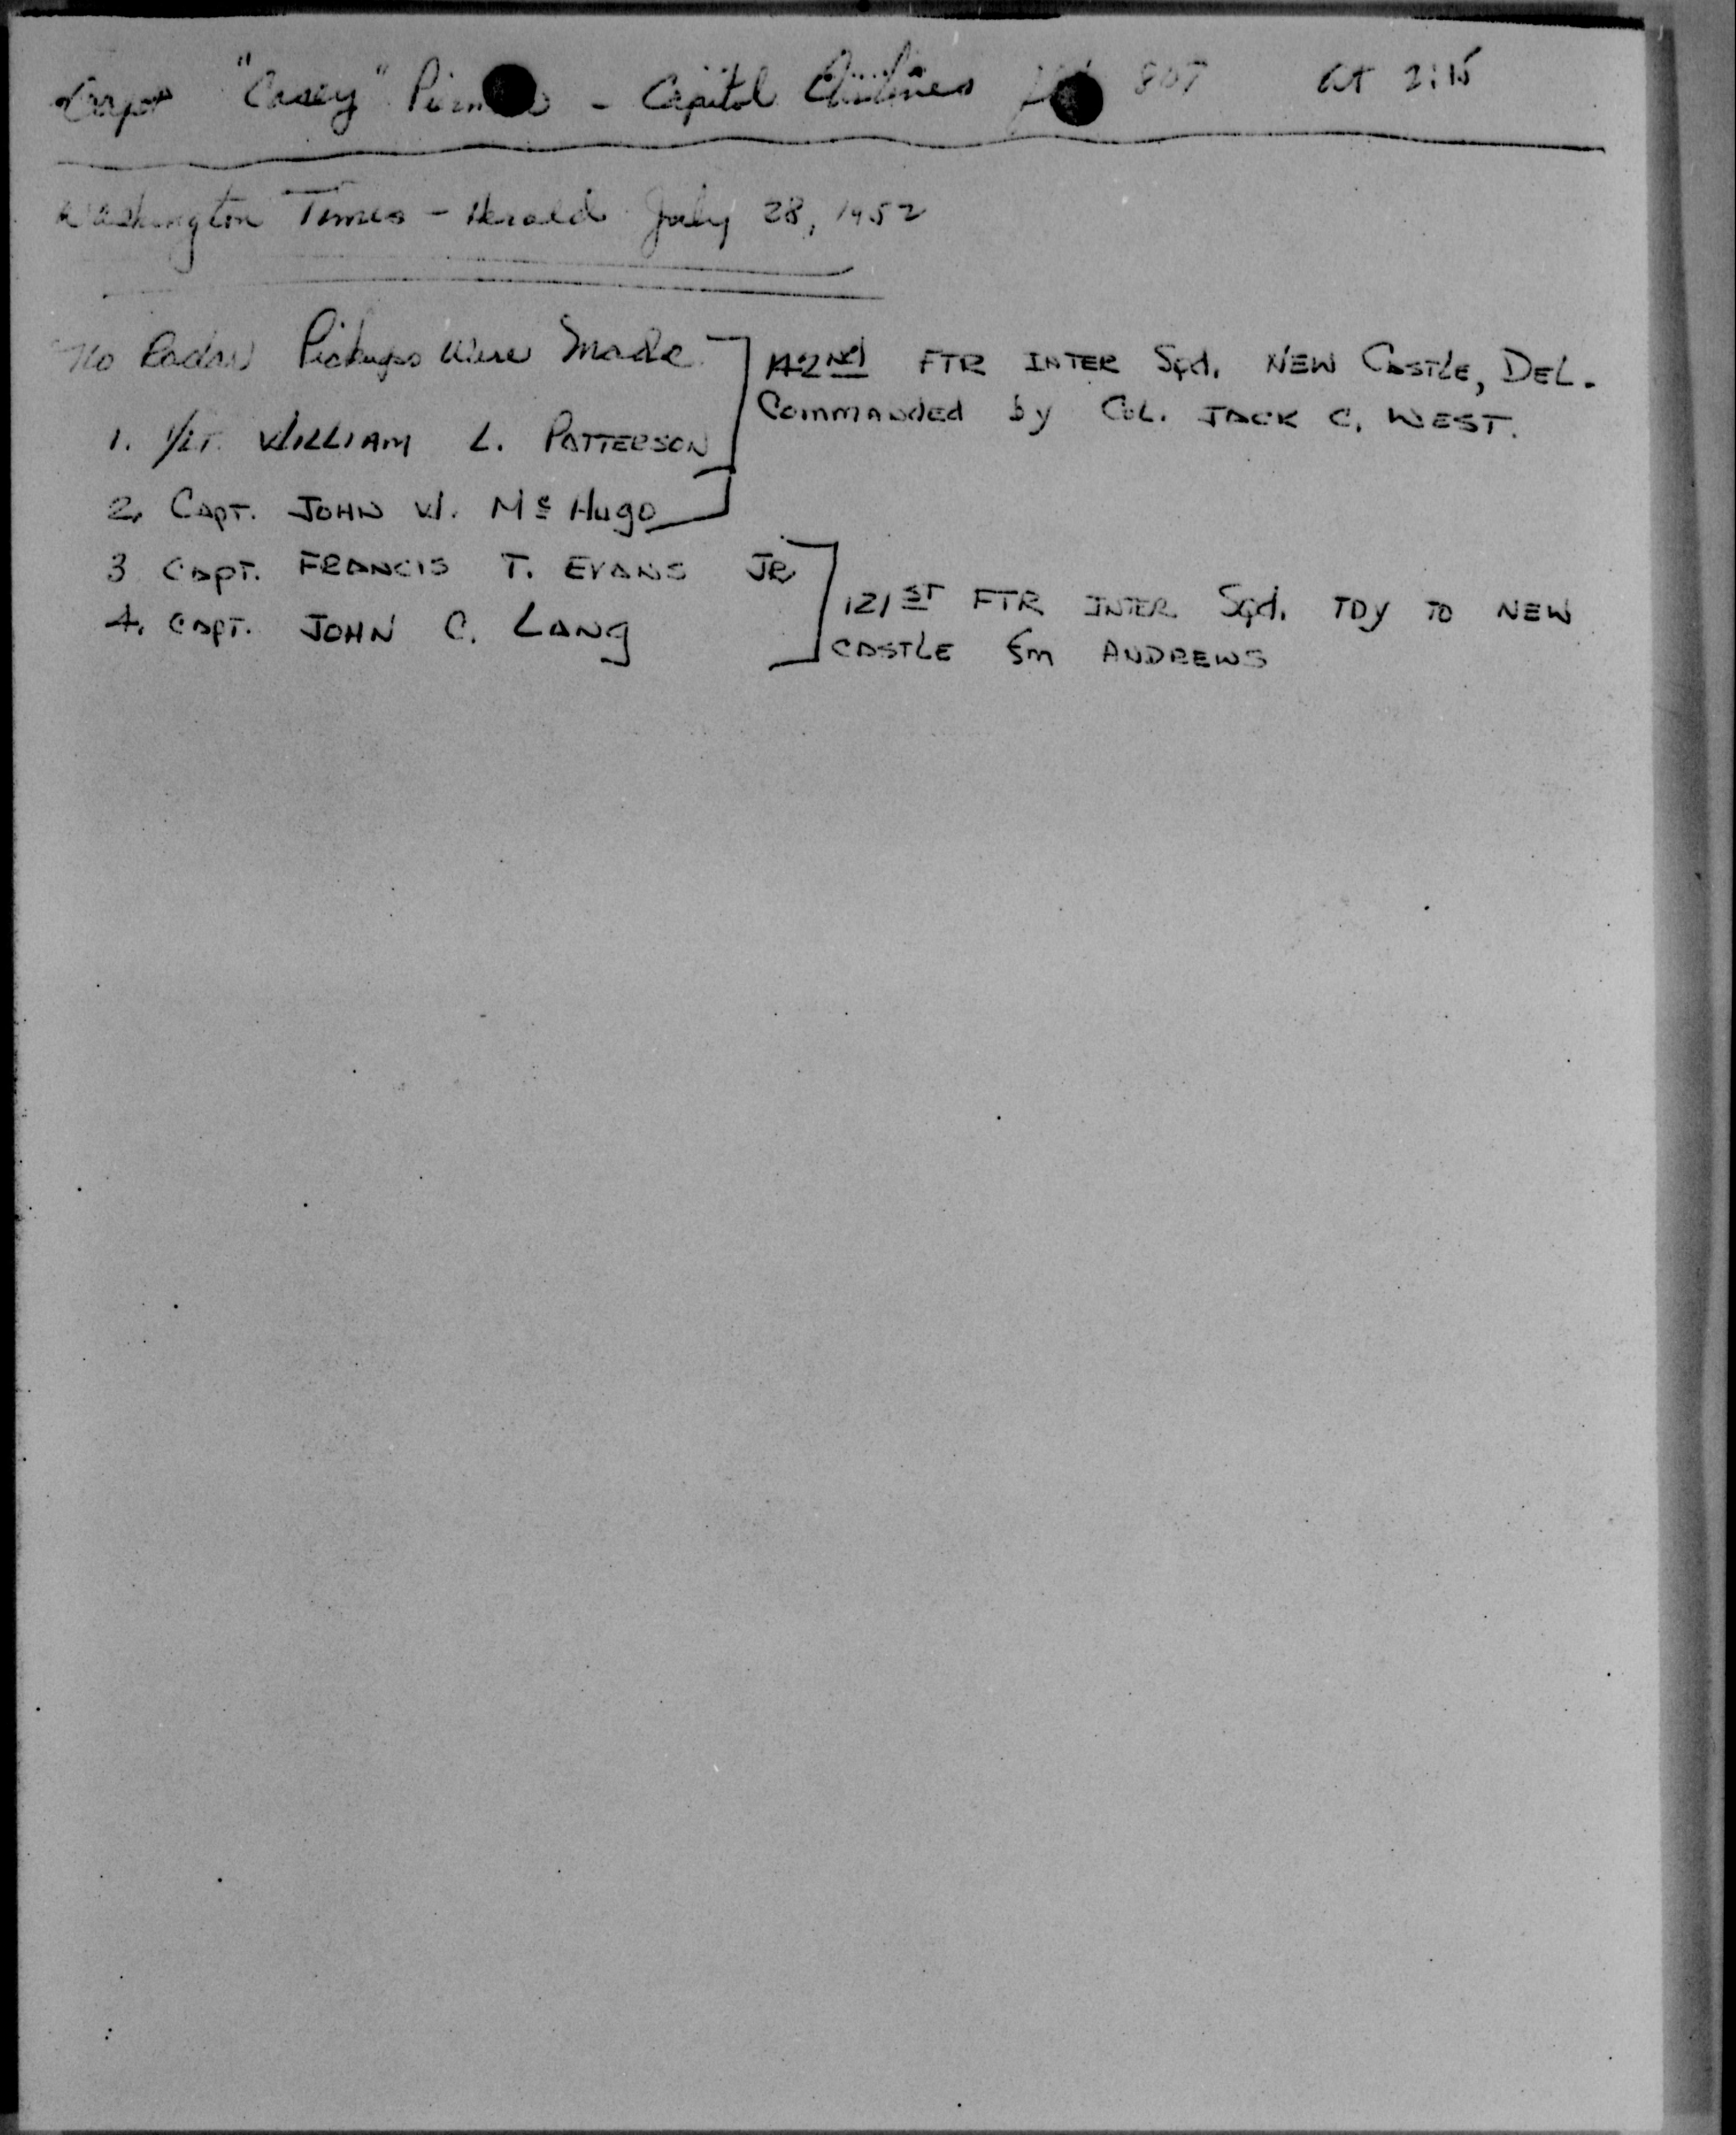 Capt "Casey" - Capitol Airlines 807 at 2:15
Washington Times - Herald July 28, 1952
No Radar Pickups Were Made
142nd FTR INTER Sqd. NEW CASTLE, DEL.
Commanded by COL. JACK C. WEST.
1. 1/LT. WILLIAM L. PATTERSON
2. CAPT. JOHN W. Mc Hugo
3 CAPT. FRANCIS T. EVANS JR
4. CAPT. JOHN C. LANG
121ST FTR INTER. Sqd. TDY TO NEW
CASTLE fm ANDREWS